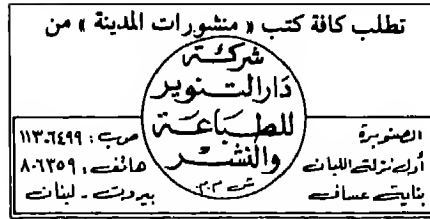 تطلب كافة كتب « منشورات المدينة » من
شركة
دار التنوير
للطباعة
والنشر
ش.م.م.
الصنوبرة
أول نزلة اللبان
بناية عساف
ص.ب: ٦٤٩٩-١١٣
هاتف: ٨٠٦٣٥٩
بيروت - لبنان